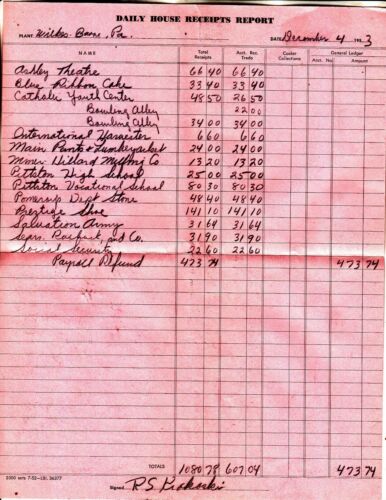 DAILY HOUSE RECEIPTS REPORT
PLANT Wilkes-Barre, Pa. DATE December 4 1953
NAME Total Receipts Acct. Rec. Trade Cooler Collections General Ledger Acct. No. Amount
Ashley Theatre 66 40 66 40
Blue Ribbon Cake 33 40 33 40
Catholic Youth Center 48 50 26 50
Bowling Alley 22 00
Bowling Alley 34 00 34 00
International Harvester 6 60 6 60
Main Paint & 24 00 24 00
Miner Hillard Milling Co 13 20 13 20
Pittston High School 25 00 25 00
Pittston Vocational School 80 30 80 30
Pomeroys Dept Store 48 40 48 40
Prestige Shoe 141 10 141 10
Salvation Army 31 64 31 64
Sears, Roebuck, and Co. 31 90 31 90
Social Security 22 60 22 60
Payroll Refund 473 74 473 74
TOTALS 1080 78 607 04 473 74
2000 sets 7-52-LBI 36377
Signed R.S.